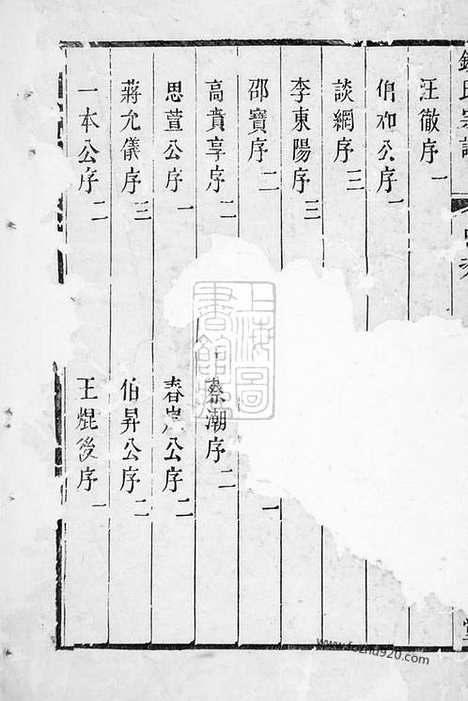 錢氏宗譜
汪徹序 一
伯和公序 一
談綱序 三
李東陽序 三
邵寶序 二
一
高賁亨序 二
蔡潮序 二
思萱公序 一
春崖公序 二
蔣允儀序 三
伯昇公序 二
一本公序 二
王焜後序 一
堂
上海圖書館藏
www.fozhu920.com